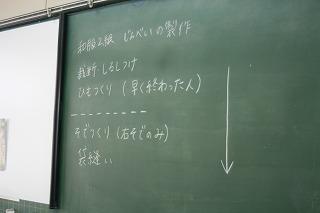 和服2級 じんべいの製作
裁断 しるしつけ
ひもつくり (早く終わった人)
そでつくり (右そでのみ)
袋縫い